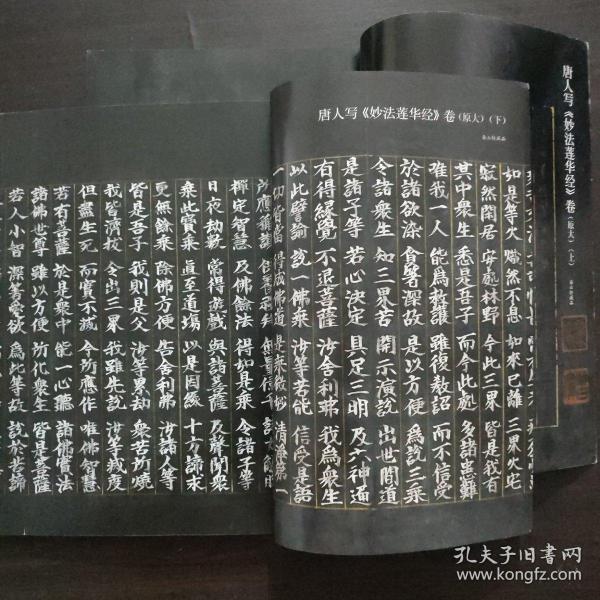 唐人写《妙法莲华经》卷(原大)(上)
唐人写《妙法莲华经》卷(原大)(下)
如是等火 熾然不息 如來已離 三界火宅
寂然閑居 安處林野 今此三界 皆是我有
其中衆生 悉是吾子 而今此處 多諸患難
唯我一人 能爲救護 雖復教詔 而不信受
於諸欲染 貪著深故 是以方便 爲說三乘
令諸衆生 知三界苦 開示演說 出世間道
是諸子等 若心決定 具足三明 及六神通
有得緣覺 不退菩薩 汝舍利弗 我爲衆生
以此譬諭 說一佛乘 汝等若能 信受是語
一切皆當 得成佛道 是乘微妙 清淨第一
禪定智慧 及佛餘法 得如是乘 令諸子等
日夜劫數 常得遊戲 與諸菩薩 及聲聞衆
乘此寶乘 直至道場 以是因緣 十方諦求
更無餘乘 除佛方便 告舍利弗 汝諸人等
皆是吾子 我則是父 汝等累劫 衆苦所燒
我皆濟拔 令出三界 我雖先說 汝等滅度
但盡生死 而實不滅 今所應作 唯佛智慧
若有菩薩 於是衆中 能一心聽 諸佛實法
諸佛世尊 雖以方便 所化衆生 皆是菩薩
若人小智 深著愛欲 爲此等故 說於苦諦
孔夫子旧书网
www.kongfz.com